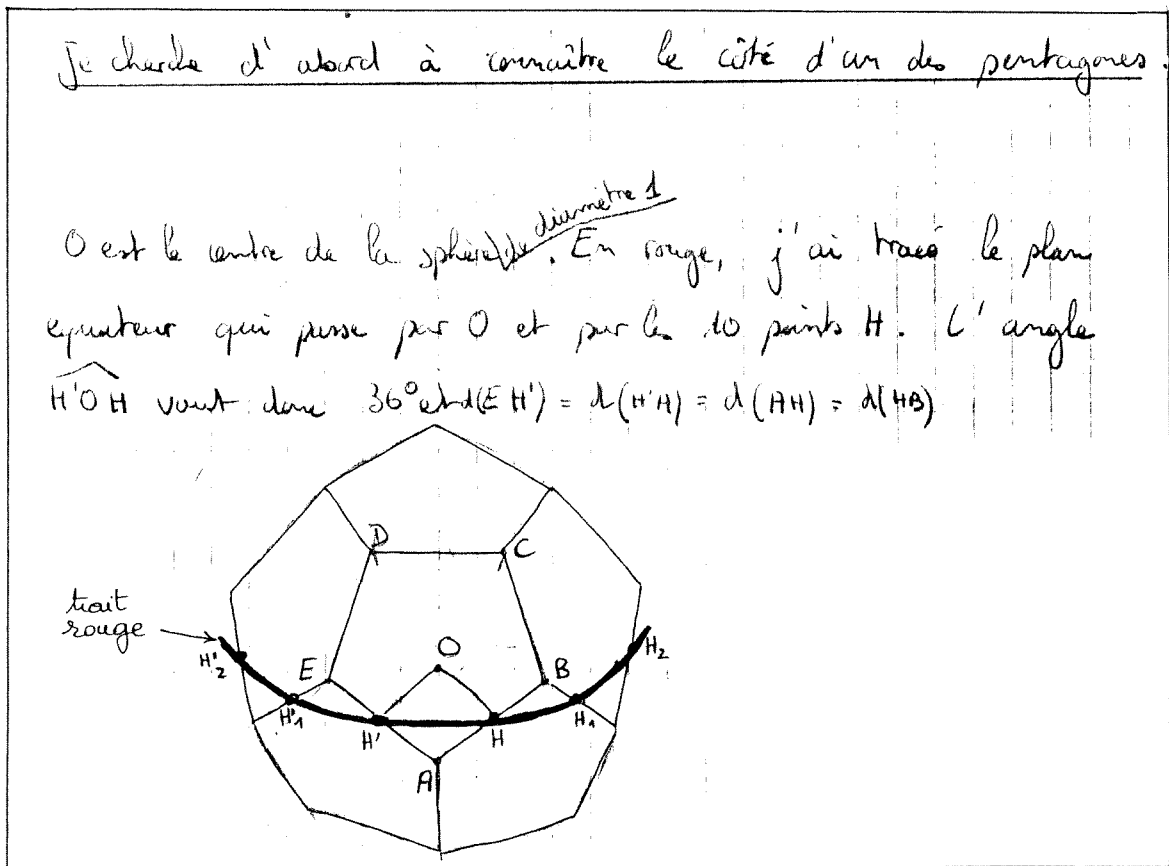 Je cherche d'abord à connaître le côté d'un des pentagones.
diamètre 1
O est le centre de la sphère de . En rouge, j'ai tracé le plan
equateur qui passe par O et par les 10 points H. L'angle
H'OH vaut donc 36° et d(EH') = d(H'A) = d(AH) = d(HB)
D
C
trait
rouge
H'2
E
O
B
H2
H'1
H'
H
H1
A